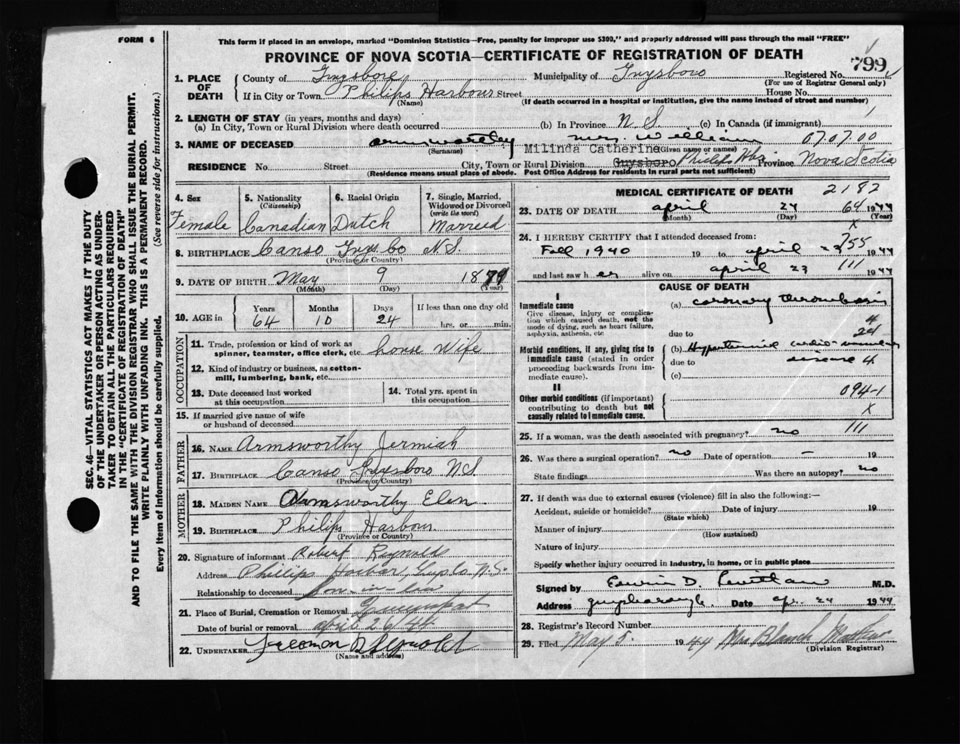 FORM 6
This form if placed in an envelope, marked "Dominion Statistics—Free, penalty for improper use $300," and properly addressed will pass through the mail "FREE"
PROVINCE OF NOVA SCOTIA—CERTIFICATE OF REGISTRATION OF DEATH
799
1. PLACE OF DEATH
County of Guysboro Municipality of Guysboro Registered No.
(For use of Registrar General only)
If in City or Town Philips Harbour Street House No.
(Name) (If death occurred in a hospital or institution, give the name instead of street and number)
2. LENGTH OF STAY (in years, months and days)
(a) In City, Town or Rural Division where death occurred (b) In Province N S (c) In Canada (if immigrant)
3. NAME OF DECEASED Mrs. William 070700
Milinda Catherine
(Surname) (Given name or names)
RESIDENCE No. Street City, Town or Rural Division Guysboro Philips Hbr Province Nova Scotia
(Residence means usual place of abode. Post Office Address for residents in rural parts not sufficient)
4. Sex Female
5. Nationality (Citizenship) Canadian
6. Racial Origin Dutch
7. Single, Married, Widowed or Divorced (write the word) Married
8. BIRTHPLACE Canso Guys Co N.S.
(Province or Country)
9. DATE OF BIRTH May 9 1879
(Month) (Day) (Year)
10. AGE in Years 64 Months 10 Days 24 If less than one day old hrs. or min.
OCCUPATION
11. Trade, profession or kind of work as spinner, teamster, office clerk, etc. house Wife
12. Kind of industry or business, as cotton-mill, lumbering, bank, etc.
13. Date deceased last worked at this occupation
14. Total yrs. spent in this occupation
15. If married give name of wife or husband of deceased
FATHER
16. NAME Armsworthy Jermiah
17. BIRTHPLACE Canso Guysboro N.S
(Province or Country)
MOTHER
18. MAIDEN NAME Armsworthy Elen
19. BIRTHPLACE Philips Harbour
(Province or Country)
20. Signature of informant Robert Raynolds
Address Phillips Harbor, Guys Co. N.S.
Relationship to deceased Son in law
21. Place of Burial, Cremation or Removal
Date of burial or removal April 26/44
22. UNDERTAKER
(Name and address)
MEDICAL CERTIFICATE OF DEATH 2182
23. DATE OF DEATH april 24 64 19
(Month) (Day) (Year)
x
24. I HEREBY CERTIFY that I attended deceased from:
Fall 1940 19 to april 23 1944
755
and last saw her alive on april 23 1944
111
CAUSE OF DEATH
I
Immediate cause (a) coronary thrombosis
Give disease, injury or complication which caused death, not the mode of dying, such as heart failure, asphyxia, asthenia, etc.
4
due to 24
Morbid conditions, if any, giving rise to immediate cause (stated in order proceeding backwards from immediate cause).
(b) Hypertensive cardio-vascular
due to disease 4
(c)
II
Other morbid conditions (if important) contributing to death but not causally related to immediate cause.
094-1
x
111
25. If a woman, was the death associated with pregnancy? no
26. Was there a surgical operation? no Date of operation — 19
State findings Was there an autopsy? no
27. If death was due to external causes (violence) fill in also the following:—
Accident, suicide or homicide? Date of injury 19
(State which)
Manner of injury
(How sustained)
Nature of injury
Specify whether injury occurred in industry, in home, or in public place
Signed by Edwin D. M.D.
Address Date Ap. 24 1944
28. Registrar's Record Number
29. Filed May 5. 1944 Mrs Blanch
(Division Registrar)
SEC. 46—VITAL STATISTICS ACT MAKES IT THE DUTY
OF THE UNDERTAKER OR PERSON ACTING AS UNDERTAKER
TO OBTAIN ALL THE PARTICULARS REQUIRED
IN THE "CERTIFICATE OF REGISTRATION OF DEATH"
AND TO FILE THE SAME WITH THE DIVISION REGISTRAR WHO SHALL ISSUE THE BURIAL PERMIT.
WRITE PLAINLY WITH UNFADING INK. THIS IS A PERMANENT RECORD.
Every item of information should be carefully supplied. (See reverse side for instructions.)